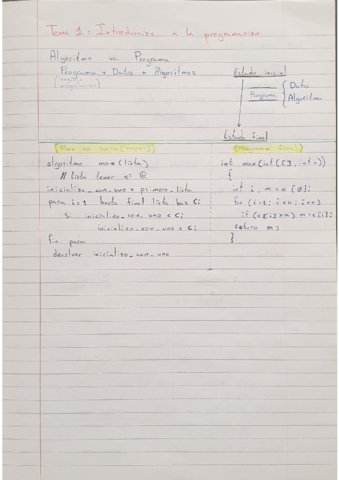 Tema 1: Introducción a la programación
Algoritmo vs. Programa
Programa = Datos + Algoritmos
Estado inicial
Programa
Datos
Algoritmo
Estado final
(Programa final)
algoritmo max (lista)
// lista tener nº ℝ
inicializo_con_uno = primero_lista
para i=1 hasta final lista haz
si inicializo_con_uno <
inicializo_con_uno =
fin para
devolver inicializo_con_uno
int max(int [], int n)
{
int i, m = a [0];
for (i=1; i<n; i++)
if (a[i]>m) m=a[i];
return m;
}